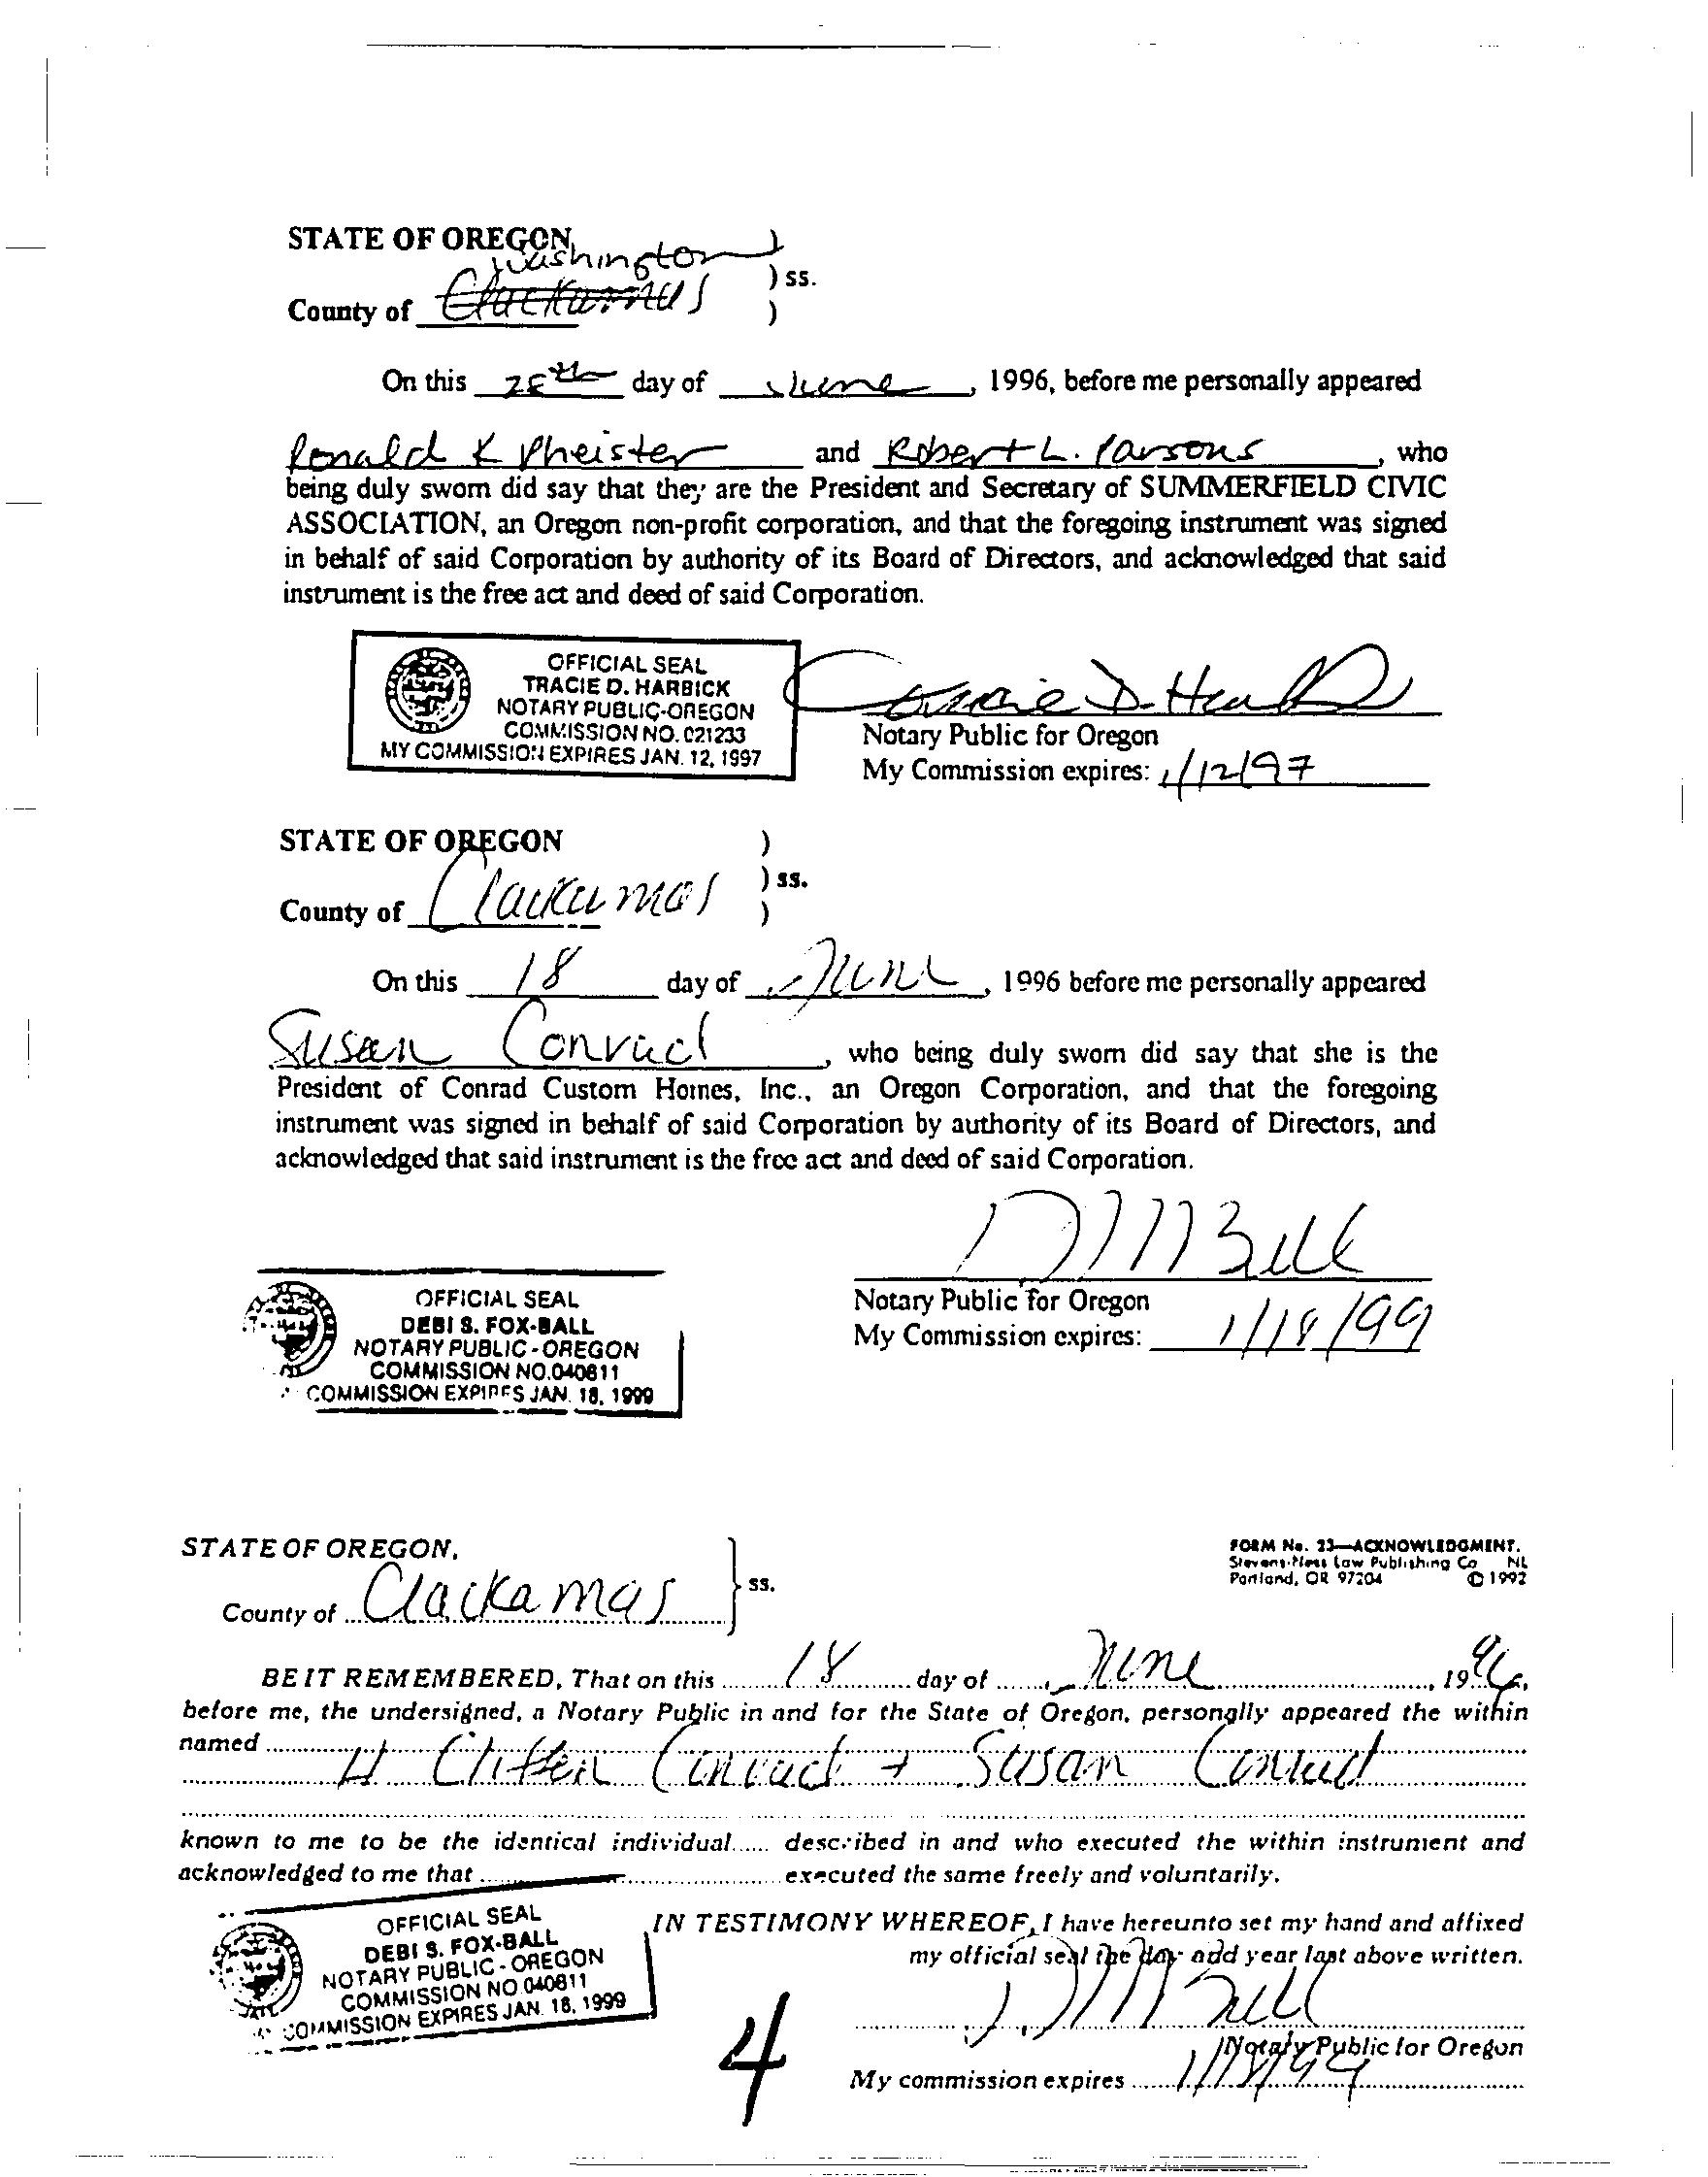 STATE OF OREGON,
Washington
) ss.
County of Clackamas )
On this day of June, 1996, before me personally appeared
Ronald K Pheister and Robert L. Parsons, who
being duly sworn did say that they are the President and Secretary of SUMMERFIELD CIVIC
ASSOCIATION, an Oregon non-profit corporation, and that the foregoing instrument was signed
in behalf of said Corporation by authority of its Board of Directors, and acknowledged that said
instrument is the free act and deed of said Corporation.
OFFICIAL SEAL
TRACIE D. HARBICK
NOTARY PUBLIC-OREGON
COMMISSION NO. 021233
MY COMMISSION EXPIRES JAN. 12, 1997
Notary Public for Oregon
My Commission expires: 1/12/97
STATE OF OREGON )
) ss.
County of Clackamas )
On this 18 day of June, 1996 before me personally appeared
Susan Conrad, who being duly sworn did say that she is the
President of Conrad Custom Homes, Inc., an Oregon Corporation, and that the foregoing
instrument was signed in behalf of said Corporation by authority of its Board of Directors, and
acknowledged that said instrument is the free act and deed of said Corporation.
OFFICIAL SEAL
DEBI S. FOX-BALL
NOTARY PUBLIC - OREGON
COMMISSION NO.040811
COMMISSION EXPIRES JAN. 18, 1999
Notary Public for Oregon
My Commission expires: 1/18/99
STATE OF OREGON,
County of Clackamas } ss.
FORM No. 23—ACKNOWLEDGMENT.
Stevens-Ness Law Publishing Co NL
Portland, OR 97204 © 1992
BE IT REMEMBERED, That on this 18 day of June, 1996,
before me, the undersigned, a Notary Public in and for the State of Oregon, personally appeared the within
named
H Conrad + Susan Conrad
known to me to be the identical individual...... described in and who executed the within instrument and
acknowledged to me that executed the same freely and voluntarily.
IN TESTIMONY WHEREOF, I have hereunto set my hand and affixed
my official seal the day and year last above written.
OFFICIAL SEAL
DEBI S. FOX-BALL
NOTARY PUBLIC - OREGON
COMMISSION NO.040811
COMMISSION EXPIRES JAN. 18, 1999
Notary Public for Oregon
My commission expires 1/18/99
4